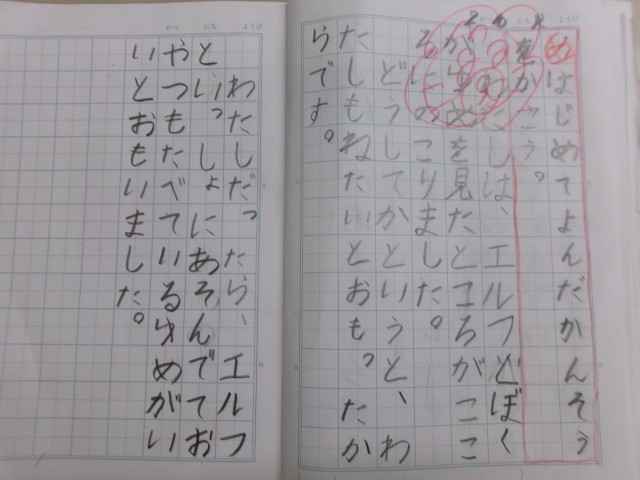 ようび
にち
がつ
めはじめてよんだかんそう
をかこう。
わたしは、エルフとぼく
がゆめを見たところがここ
ろにのこりました。
どうしてかというと、わ
たしもねたいとおもったか
らです。
ようび
にち
がつ
わたしだったら、エルフ
といっしょにあそんでてお
やつもたべているゆめがい
いとおもいました。